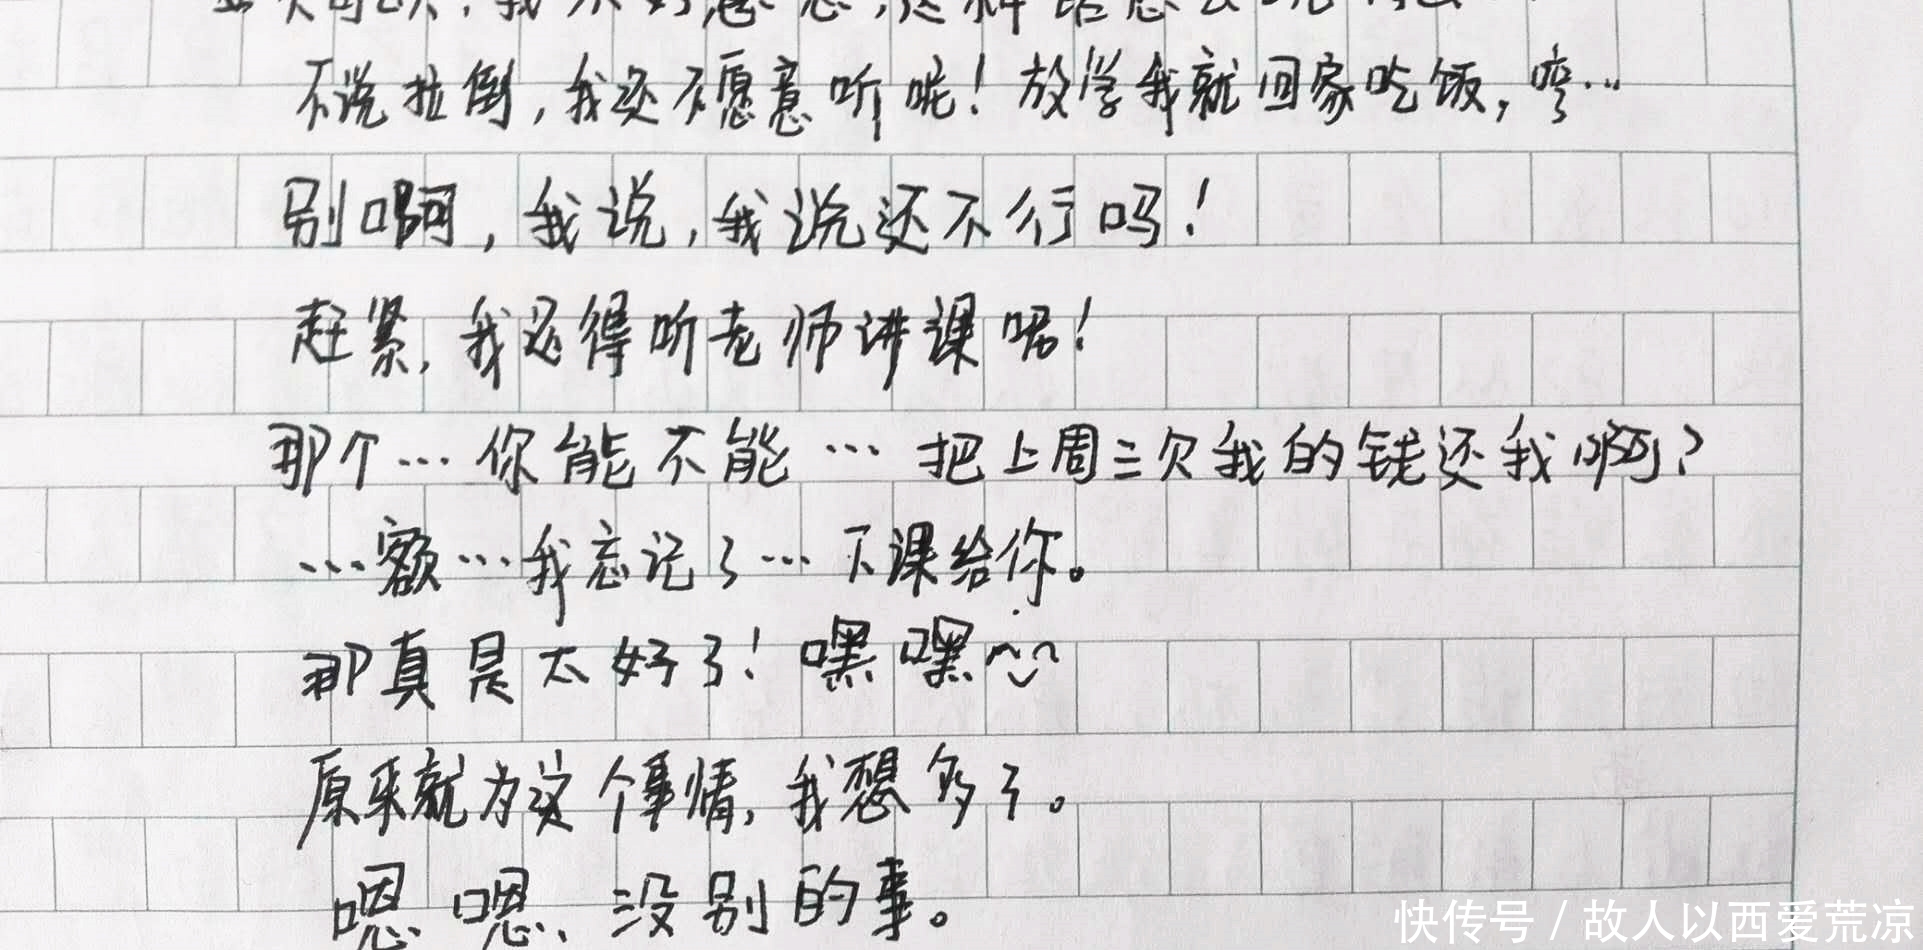 不说拉倒,我还不愿意听呢!放学我就回家吃饭,哼…
别啊,我说,我说还不行吗!
赶紧,我还得听老师讲课呢!
那个…你能不能…把上周三欠我的钱还我啊?
…额…我忘记了…下课给你。
那真是太好了!嘿嘿~
原来就为这个事情,我想多了。
嗯嗯、没别的事。
快传号/故人以西爱荒凉